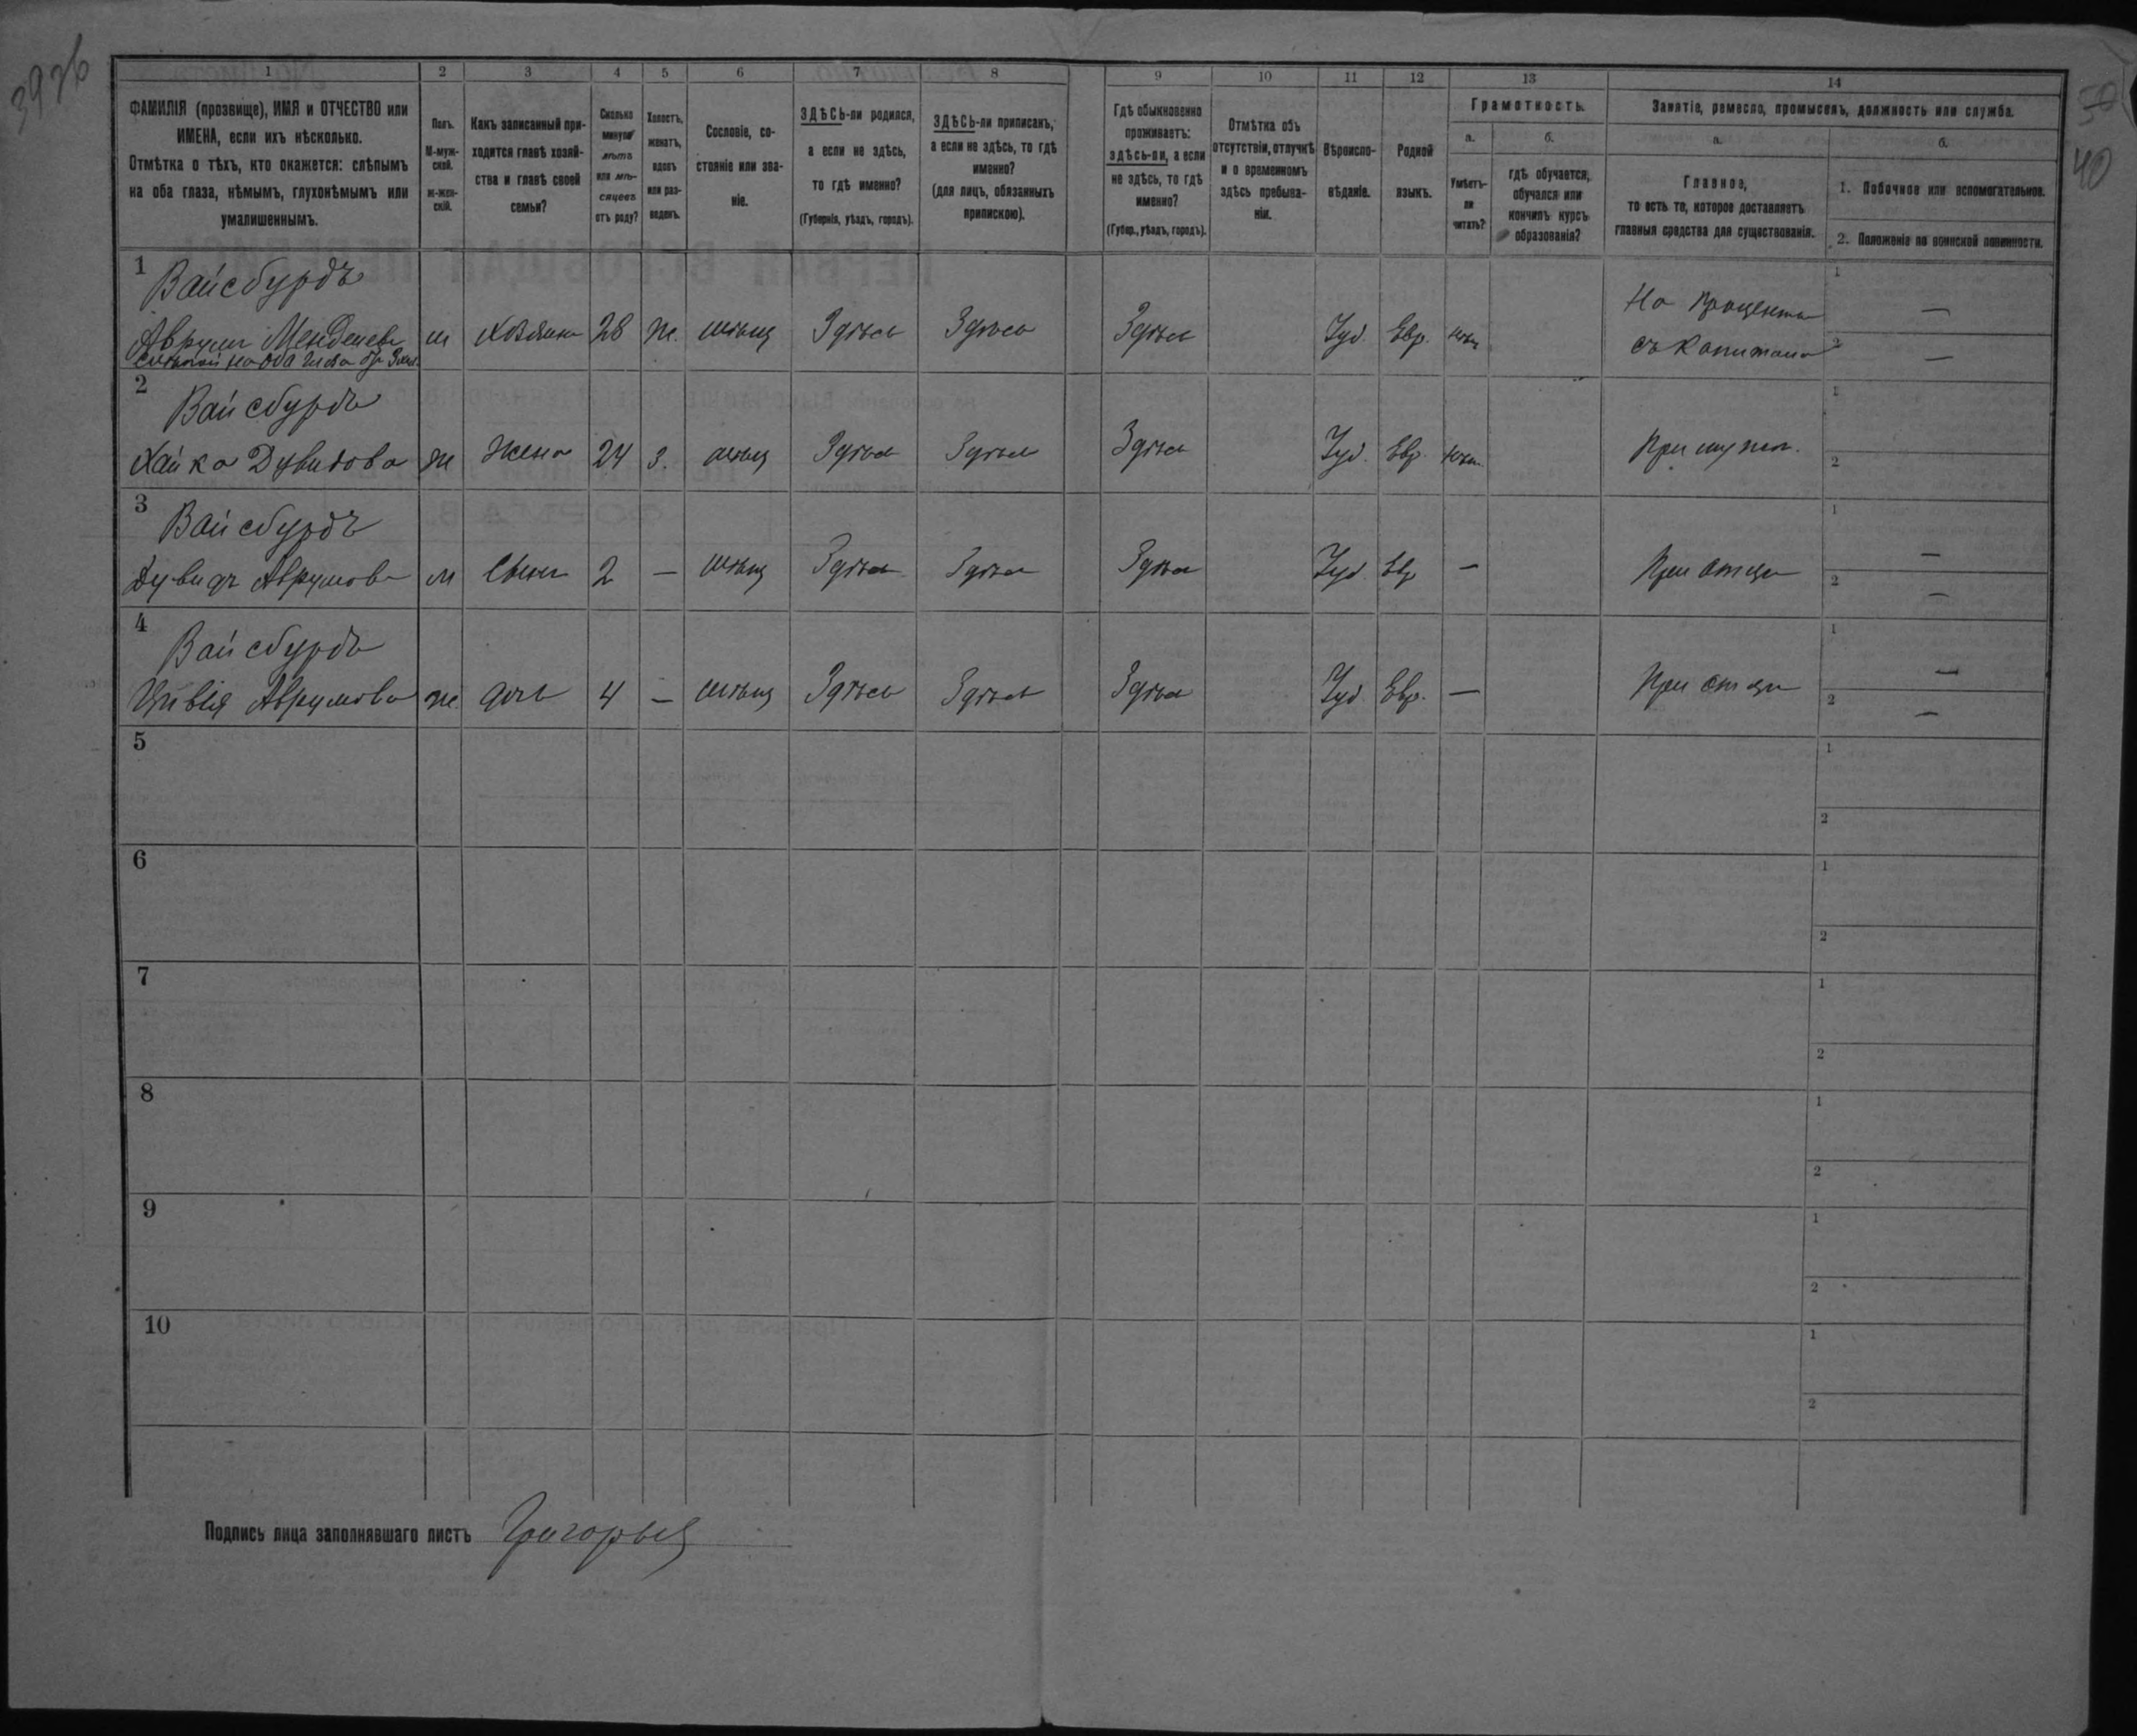 39 об
50
40
1 2 3 4 5 6 7 8 9 10 11 12 13 14
ФАМИЛІЯ (прозвище), ИМЯ и ОТЧЕСТВО или
ИМЕНА, если ихъ нѣсколько.
Отмѣтка о тѣхъ, кто окажется: слѣпымъ
на оба глаза, нѣмымъ, глухонѣмымъ или
умалишеннымъ.
Полъ.
М-муж-
ской.
Ж-жен-
скій.
Какъ записанный при-
ходится главѣ хозяй-
ства и главѣ своей
семьи?
Сколько
минуло
лѣтъ
или мѣ-
сяцевъ
отъ роду?
Холостъ,
женатъ,
вдовъ
или раз-
веденъ.
Сословіе, со-
стояніе или зва-
ніе.
ЗДѢСЬ-ли родился,
а если не здѣсь,
то гдѣ именно?
(Губернія, уѣздъ, городъ).
ЗДѢСЬ-ли приписанъ,
а если не здѣсь, то гдѣ
именно?
(для лицъ, обязанныхъ
припискою).
Гдѣ обыкновенно
проживаетъ:
здѣсь-ли, а если
не здѣсь, то гдѣ
именно?
(Губер., уѣздъ, городъ).
Отмѣтка объ
отсутствіи, отлучкѣ
и о временномъ
здѣсь пребыва-
ніи.
Вѣроиспо-
вѣданіе.
Родной
языкъ.
Грамотность.
а.
Умѣетъ-
ли
читать?
б.
гдѣ обучается,
обучался или
кончилъ курсъ
образованія?
Занятіе, ремесло, промыселъ, должность или служба.
а.
Главное,
то есть то, которое доставляетъ
главныя средства для существованія.
б.
1. Побочное или вспомогательное.
2. Положеніе по воинской повинности.
1
Вайсбурдъ
Аврумъ Менделевъ м Хозяинъ 28 ж. мѣщ Здѣсь Здѣсь Здѣсь Іуд. Евр.
слѣпой на оба глаза
На проценты
съ капитала
1 —
2 —
2
Вайсбурдъ
Хайка Дувидова ж жена 24 з. мѣщ Здѣсь Здѣсь Здѣсь Іуд. Евр. При мужѣ.
1
2
3
Вайсбурдъ
Дувидъ Аврумовъ м Сынъ 2 — мѣщ Здѣсь Здѣсь Здѣсь Іуд. Евр — При отцѣ
1 —
2 —
4
Вайсбурдъ
Цивія Аврумова ж дочь 4 — мѣщ Здѣсь Здѣсь Здѣсь Іуд. Евр. — При отцѣ
1 —
2 —
5
1
2
6
1
2
7
1
2
8
1
2
9
1
2
10
1
2
Подпись лица заполнявшаго листъ